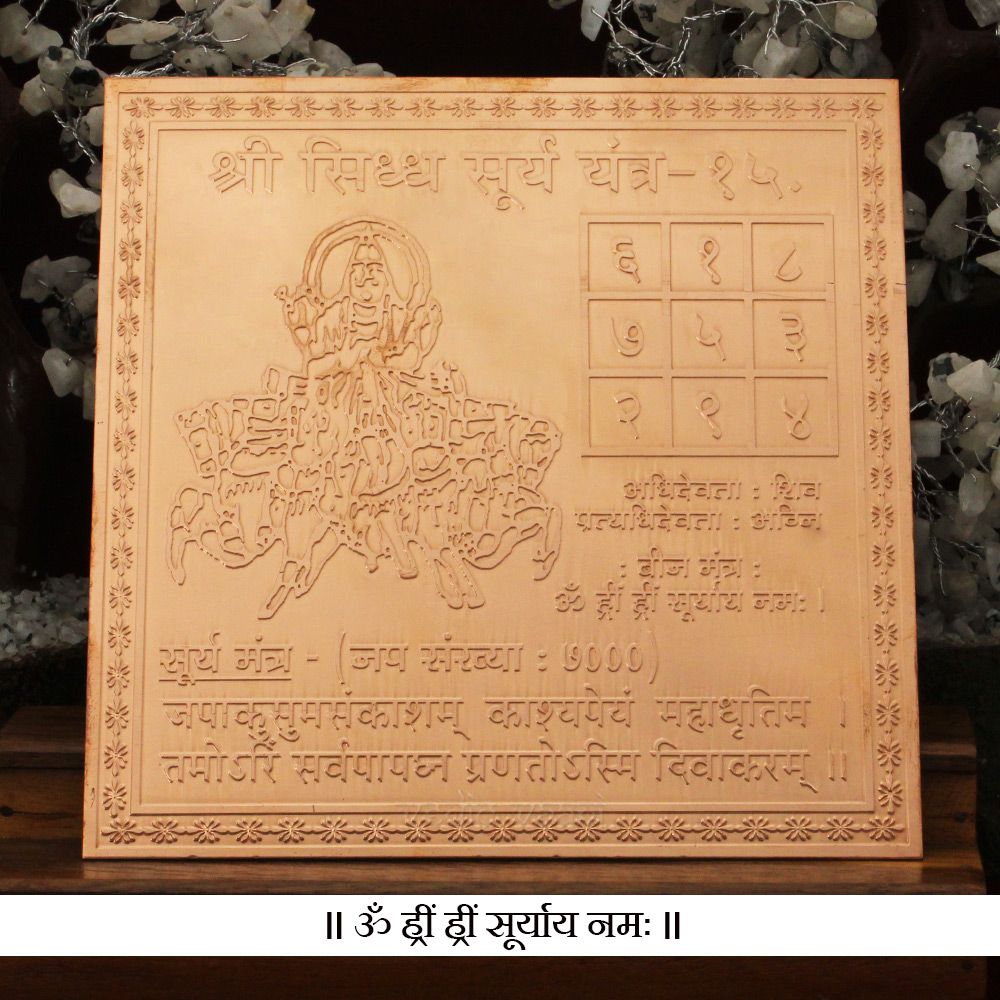 श्री सिध्ध सूर्य यंत्र-१५.
६ १ ८
७ ५ ३
२ ९ ४
अधिदेवता : शिव
प्रत्यधिदेवता : अग्नि
: बीज मंत्र :
ॐ ह्रीं ह्रीं सूर्याय नमः ।
सूर्य मंत्र - (जप संख्या : ७०००)
जपाकुसुमसंकाशम् काश्यपेयं महाधृतिम ।
तमोऽरिं सर्वपापघ्न प्रणतोऽस्मि दिवाकरम् ॥
॥ ॐ ह्रीं ह्रीं सूर्याय नमः ॥